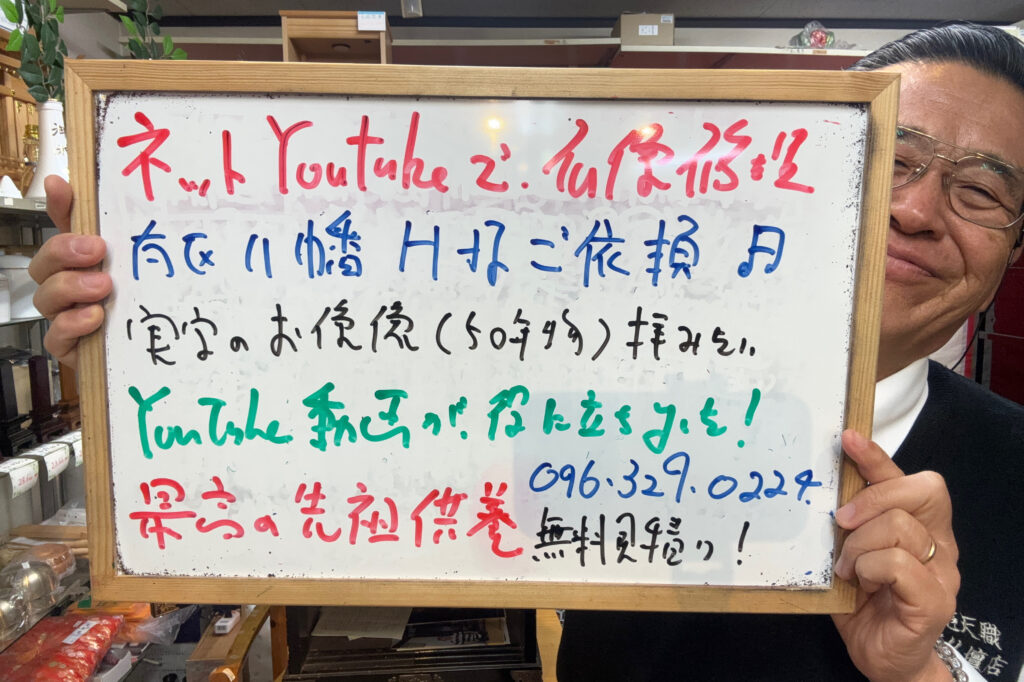 ネットYouTubeで、仏像修理
南区 川幡 H様ご依頼
実家のお像様(50年物)拝みたい
YouTube動画が、役に立ちました!
最高の先祖供養
096.329.0224
無料見積り!
天職
仏壇店